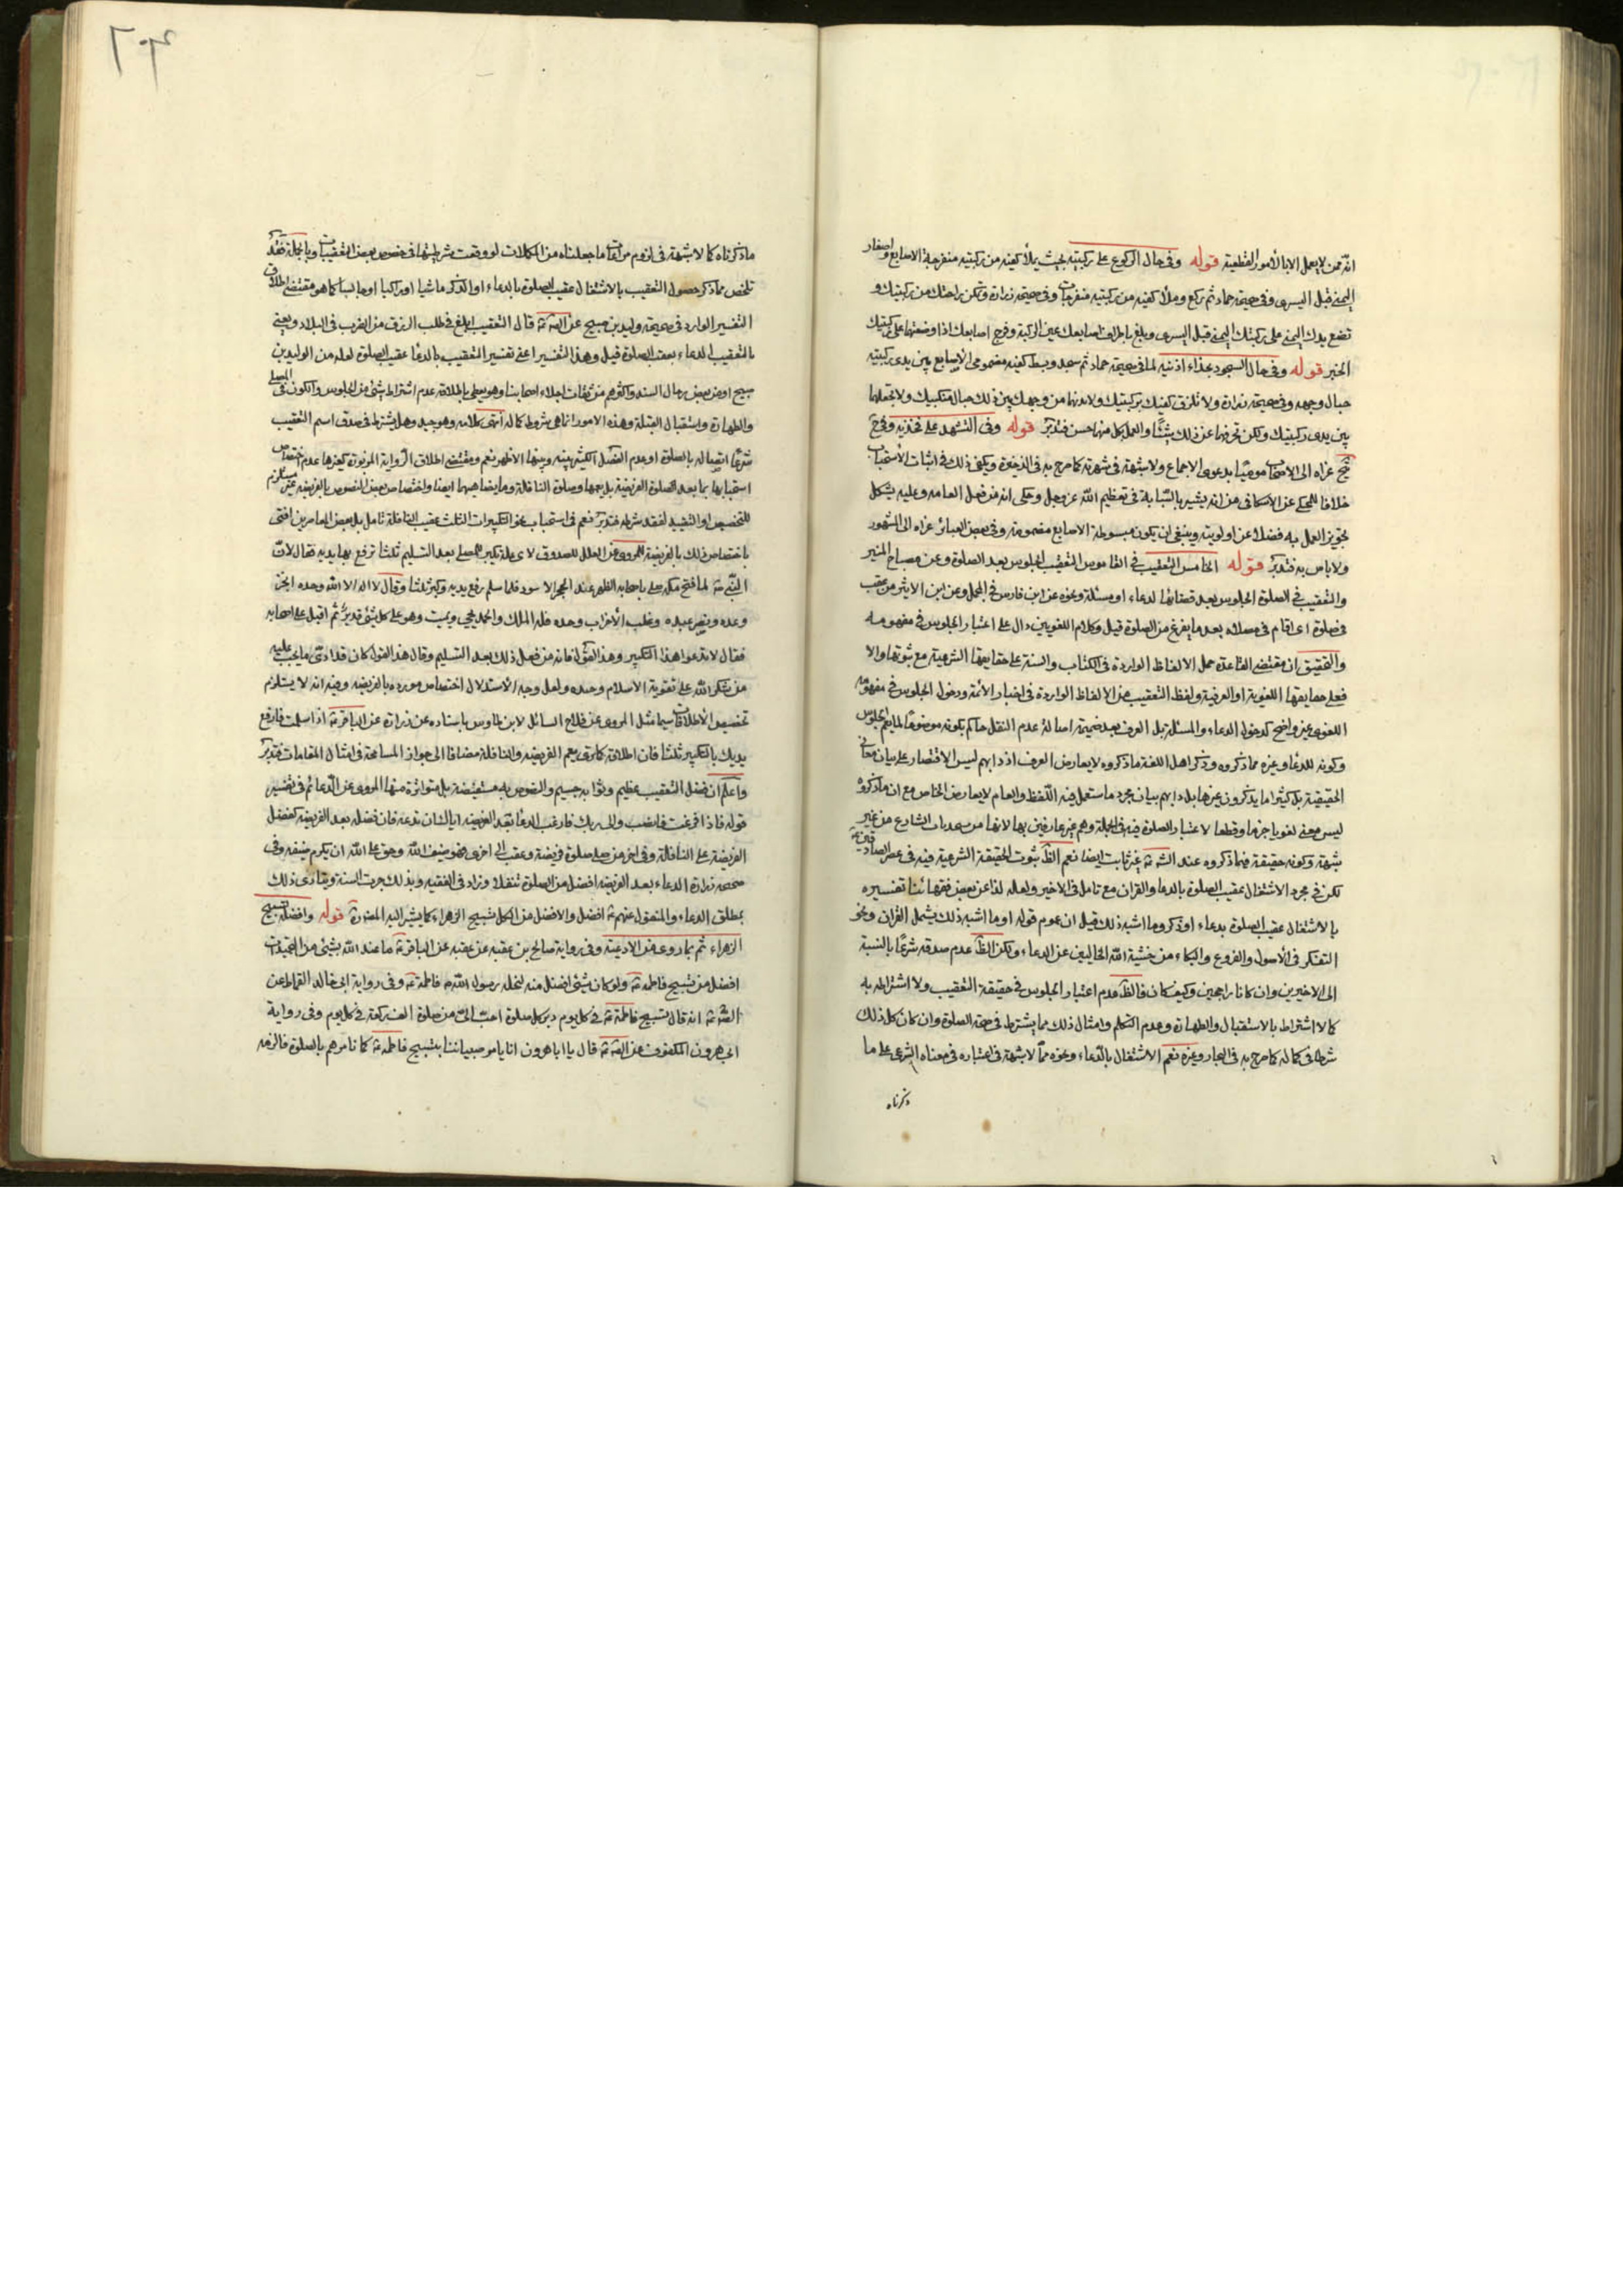 انه ممن لا يعمل الا بالأمور القطعية قوله وفى حال الركوع على ركبتيه بحيث يملأ كفيه من ركبتيه منفرجة الاصابع واصفار
اليمنى قبل اليسرى وفى صحيحة حماد ثم ركع وملأ كفيه من ركبتيه منفرجات وفى صحيحة زرارة وتمكن راحتك من ركبتيك و
تضع يدك اليمنى على ركبتك اليمنى قبل اليسرى وبلغ باطراف اصابعك عين الركبة وفرج اصابعك اذا وضعتها على ركبتيك
الخبر قوله وفى حال السجود بحذاء اذنيه لما فى صحيحة حماد ثم سجد وبسط كفيه مضمومتى الاصابع بين يدى ركبتيه
حيال وجهه وفى صحيحة زرارة ولا تلزق كفيك بركبتيك ولا تدنهما من وجهك بين ذلك حيال منكبيك ولا تجعلهما
بين يدى ركبتيك ولكن تحرفهما عن ذلك شيئا والعمل بكل منهما حسن فتدبر قوله وفى التشهد على فخذيه وفى
عزاه الى الاصحاب مدعيا بدعوى الاجماع ولا شبهة فى شهرته كما صرح به فى الذخيرة ويكفى ذلك فى اثبات الأستحباب
خلافا للمحكى عن الاسكافى من انه يشير بالسبابة فى تعظيم الله عز وجل وحكى انه من فعل العامه وعليه يشكل
تجويز العمل به فضلا عن اولويته وينبغى ان يكون مبسوطة الاصابع مضمومة وفى بعض العبائر عزاه الى المشهور
ولا باس به فتدبر قوله الخامس التعقيب فى القاموس التعقيب الجلوس بعد الصلوة وعن مصباح المنير
والتعقيب فى الصلوة الجلوس بعد قضائها لدعاء او مسئلة ونحوه عن ابن فارس فى المجمل وعن ابن الاثير من عقب
فى صلوة اى اقام فى مصلاه بعد ما يفرغ من الصلوة قيل وكلام اللغويين دال على اعتبار الجلوس فى مفهومه
والتحقيق ان مقتضى القاعدة حمل الالفاظ الواردة فى الكتاب والسنة على حقايقها الشرعية مع ثبوتها والا
فعلى حقايقها اللغوية او العرفية ولفظ التعقيب من الالفاظ الواردة فى اخبار الائمة ودخول الجلوس فى مفهومه
اللغوى غير واضح كدخول الدعاء والمسئلة بل العرف بعد ضميمة اصالة عدم النقل حاكم بكونه موضوعا لما يعم الجلوس
وكونه للدعاء وغيره مما ذكروه وذكر اهل اللغة ما ذكروه لا يعارض العرف اذ دابهم ليس الاقتصار على بيان معانى
الحقيقية بل كثيرا ما يذكرون غيرها بل دابهم بيان مجرد ما ستعمل فيه اللفظ والعام لا يعارض الخاص مع ان ما ذكروه
ليس معنى لغويا جزما وقطعا لاعتبار الصلوة فيه فى الجملة وهم غير عارفين بها لانها من مجعولات الشارع من غير
شبهة وكونه حقيقة فيما ذكروه عند الش غير ثابت ايضا نعم الظ ثبوت الحقيقة الشرعية فيه فى عصر الصادقين
لكن فى مجرد الاشتغال عقيب الصلوة بالدعاء والقران مع تامل فى الاخير ولعله لذا عن بعض فقهائنا تفسيره
بالاشتغال عقيب الصلوة بدعاء او ذكر وما اشبه ذلك قيل ان عموم قوله او ما اشبه ذلك يشمل القران ونحو
التفكر فى الأصول والفروع والبكاء من خشية الله الخاليين عن الدعاء ولكن الظ عدم صدقه شرعا بالنسبة
الى الاخيرين وان كانا راجحين وكيف كان فالظ عدم اعتبار الجلوس فى حقيقة التعقيب ولا اشتراطه به
كما لا اشتراط بالاستقبال والطهارة وعدم التكلم وامثال ذلك مما يشترط فى صحة الصلوة وان كان كل ذلك
شرطا فى كماله كما صرح به فى البحار وغيره نعم الاشتغال بالدعاء ونحوه مما لا شبهة فى اعتباره فى معناه الشرعى على ما
ذكرناه
ما ذكرناه كما لا شبهة فى لزوم مراعات ما جعلناه من المكملات لو وقعت شرطيتها فى خصوص بعض التعقيبات وبالجملة فقد
تلخص مما ذكر حصول التعقيب بالاشتغال عقيب الصلوة بالدعاء او الذكر ماشيا او راكبا او جالسا كما هو مقتضى اطلاق
التفسير الوارد فى صحيحة وليد بن صبيح عن الص قال التعقيب ابلغ فى طلب الرزق من الضرب فى البلاد ويعنى
بالتعقيب الدعاء بعقب الصلوة قيل وهذا التفسير اعنى تفسير التعقيب بالدعاء عقيب الصلوة لعله من الوليد بن
صبيح او من بعض رجال السند واكثرهم من ثقات اجلاء اصحابنا وهو يعطى باطلاقه عدم اشتراط شئ من الجلوس والكون فى المصلى
والطهارة واستقبال القبلة وهذه الامور انما هى شروط كماله انتهى كلامه وهو جيد وهل يشترط فى صدق اسم التعقيب
شرعا اتصاله بالصلوة او عدم الفصل الكثير بينه وبينها الاظهر نعم ومقتضى اطلاق الرواية المزبورة كغيرها عدم اختصاص
استحبابها بما بعد الصلوة الفريضة بل يعمها وصلوة النافلة وما يضاهيها ايضا واختصاص بعض النصوص بالفريضه غير مستلزم
للتخصيص او التقييد لفقد شرطه فتدبر نعم فى استحباب نحو التكبيرات الثلث عقيب النافلة تامل بل بعض المعاصرين افتى
باختصاص ذلك بالفريضة للمروى عن العلل للصدوق لاى علة تكبير المصلى بعد التسليم ثلثا ترفع بها يديه فقال لان
النبى ص لما فتح مكه صلى باصحابه الظهر عند الحجر الاسود فلما سلم رفع يديه وكبر ثلثا وقال لا اله الا الله وحده انجز
وعده ونصر عبده وغلب الأحزاب وحده فله الملك والحمد يحيى ويميت وهو على كل شئ قدير ثم اقبل على اصحابه
فقال لا تدعوا هذا التكبير وهذ القول فانه من فعل ذلك بعد التسليم وقال هذا القول كان قد ادى ما يجب عليه
من شكر الله على تقوية الاسلام وجنده ولعل وجه الاستدلال اختصاص مورده بالفريضه وفيه انه لا يستلزم
تخصيص الاطلاقات سيما مثل المروى عن فلاح السائل لابن طاوس باسناده عن زرارة عن الباقر ع اذا سلمت فارفع
يديك بالتكبير ثلثا فان اطلاقه كما ترى يعم الفريضه والنافلة مضافا الى جواز المسامحة فى امثال المقامات فتدبر
واعلم ان فضل التعقيب عظيم وثوابه جسيم والنصوص به مستفيضة بل متواترة منها المروى عن الدعائم فى تفسير
قوله فاذا فرغت فانصب والى ربك فارغب الدعاء بعد الفريضه اياك ان تدعه فان فضله بعد الفريضه كفضل
الفريضة على النافلة وفى اخر من صلى صلوة فريضة وعقب الى اخرى فهو ضيف الله وحق على الله ان يكرم ضيفه وفى
صحيحه زرارة الدعاء بعد الفريضه افضل من الصلوة تنفلا وزاد فى الفقيه وبذلك جرت السنة ويتادى ذلك
بمطلق الدعاء والمنقول عنهم ع افضل والافضل من الكل تسبيح الزهراء كما يشير اليه المص قوله وافضله تسبيح
الزهراء ثم بما روى من الادعية وفى رواية صالح بن عقبه عن عقبه عن الباقر ع ما عبد الله بشئ من التحميدات
افضل من تسبيح فاطمه ع ولو كان شئ افضل منه لنحله رسول الله ص فاطمة ع وفى رواية ابى خالد القماط عن
الص ع انه قال تسبيح فاطمة ع فى كل يوم دبر كل صلوة احب الى من صلوة الف ركعة فى كل يوم وفى رواية
ابى هرون المكفوف عن الص ع قال يا ابا هرون انا نامر صبياننا بتسبيح فاطمه ع كما نامرهم بالصلوة فالزمه